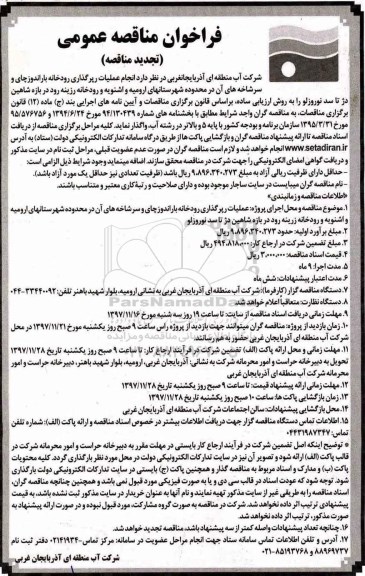 فراخوان مناقصه عمومی
(تجدید مناقصه)
شرکت آب منطقه ای آذربایجانغربی در نظر دارد انجام عملیات رپرگذاری رودخانه باراندوزچای و
سرشاخه های آن در محدوده شهرستانهای ارومیه و اشنویه و رودخانه زرینه رود در بازه شاهین
دژ تا سد نوروزلو را به روش ارزیابی ساده، براساس قانون برگزاری مناقصات و آیین نامه های اجرایی بند (ج) ماده (۱۲) قانون
برگزاری مناقصات، به مناقصه گران واجد شرایط مطابق با بخشنامه های شماره ۹۴/۱۳۰۴۳۹ مورخ ۱۳۹۴/۶/۲۴ و ۹۵/۵۷۶۷۵۶
مورخ ۱۳۹۵/۳/۳۱ سازمان برنامه و بودجه کشور با پایه ۵ و بالاتر در رشته آب واگذار نماید. کلیه مراحل برگزاری مناقصه از دریافت
اسناد مناقصه تا ارائه پیشنهاد مناقصه گران و بازگشایی پاکت ها از طریق درگاه سامانه تدارکات الکترونیکی دولت (ستاد) به آدرس
www.setadiran.ir انجام خواهد شد و لازم است مناقصه گران در صورت عدم عضویت قبلی، مراحل ثبت نام در سایت مذکور
و دریافت گواهی امضای الکترونیکی را جهت شرکت در مناقصه محقق سازند. اضافه مینماید وجود شرایط ذیل الزامی است:
- حداقل دارای ظرفیت ریالی آزاد به مبلغ ۹،۸۹۶،۳۴۰،۲۷۳ ریال باشد (ظرفیت تعدادی نیز حداقل یک مورد آزاد باشد).
- نام مناقصه گران میبایست در سایت ساجار موجود بوده و دارای صلاحیت و رتبه کاری معتبر و متناسب باشند.
«اطلاعات مناقصه و زمانبندی»
۱. موضوع مناقصه و محل اجرای پروژه: عملیات رپرگذاری رودخانه باراندوزچای و سرشاخه های آن در محدوده شهرستانهای ارومیه
و اشنویه و رودخانه زرینه رود در بازه شاهین دژ تا سد نوروزلو
۲. مبلغ برآورد اولیه: حدود ۹،۸۹۶،۳۴۰،۲۷۳ ریال.
۳. مبلغ تضمین شرکت در ارجاع کار: ۴۹۴،۸۱۸،۰۰۰ ریال.
۴. قیمت اسناد مناقصه: ۲،۰۰۰،۰۰۰ ریال.
۵. مدت اجرا: ۹ ماه
۶. مدت اعتبار پیشنهادات: شش ماه
۷. دستگاه مناقصه گزار (کارفرما): شرکت آب منطقه ای آذربایجان غربی به نشانی ارومیه، بلوار شهید باهنر تلفن: ۳۳۴۴۰۰۹۲-۰۴۴
۸. دستگاه نظارت: متعاقبا اعلام خواهد شد.
۹. مهلت زمانی دریافت اسناد مناقصه از سایت: تا ساعت ۱۹ روز سه شنبه مورخ ۱۳۹۷/۱۱/۱۶
۱۰. زمان بازدید از پروژه: مناقصه گران میتوانند جهت بازدید از پروژه راس ساعت ۹ صبح روز یکشنبه مورخ ۱۳۹۷/۱۱/۲۱ در محل
شرکت آب منطقه ای آذربایجان غربی حضور به هم رسانند.
۱۱. مهلت زمانی و محل ارائه پاکت (الف) تضمین شرکت در فرآیند ارجاع کار: تا ساعت ۹ صبح روز یکشنبه تاریخ ۱۳۹۷/۱۱/۲۸
تحویل به دبیرخانه حراست و امور محرمانه شرکت به نشانی: آذربایجان غربی، ارومیه، بلوار شهید باهنر، دبیرخانه حراست و امور
محرمانه شرکت آب منطقه ای آذربایجان غربی
۱۲. مهلت زمانی ارائه پیشنهاد قیمت: تا ساعت ۹ صبح روز یکشنبه تاریخ ۱۳۹۷/۱۱/۲۸
۱۳. زمان بازگشایی پاکت ها: ساعت ۱۰ صبح روز یکشنبه تاریخ ۱۳۹۷/۱۱/۲۸
۱۴. محل بازگشایی پیشنهادات: سالن اجتماعات شرکت آب منطقه ای آذربایجان غربی
۱۵. اطلاعات تماس دستگاه مناقصه گزار جهت دریافت اطلاعات بیشتر در خصوص اسناد مناقصه و ارائه پاکت (الف): شماره تلفن
تماس: ۰۴۴۳۱۹۸۷۳۴۷
* توضیح اینکه اصل تضمین شرکت در فرآیند ارجاع کار بایستی در مهلت مقرر به دبیرخانه حراست و امور محرمانه شرکت در
قالب پاکت (الف) ارائه شود و تصویر آن نیز در سایت تدارکات الکترونیکی دولت در محل مورد نظر بارگذاری گردد. کلیه محتویات
پاکت (ب) و مدارک و اسناد مربوط به مناقصه گذار و همچنین پاکت (ج) بایستی در سایت تدارکات الکترونیکی دولت بارگذاری
شود. توجه شود که عودت اسناد در قالب سی دی و یا به صورت فیزیکی مورد قبول نمی باشد و همچنین چنانچه مناقصه گران،
اسناد مناقصه را به طریقی غیر از سایت مذکور تهیه نمایند و نام آنها به عنوان خریدار در سایت مذکور ثبت نشده باشد، به قیمت
پیشنهادی ترتیب اثر داده نخواهد شد. شرکت در مناقصه به صورت گروه مشارکت، مورد قبول نبوده و در صورت ارائه پیشنهاد به
صورت مذکور، ترتیب اثر داده نخواهد شد.
۱۶. چنانچه تعداد پیشنهادات واصله کمتر از سه پیشنهاد باشد، مناقصه تجدید خواهد شد.
۱۷. آدرس و تلفن: اطلاعات تماس سامانه ستاد جهت انجام مراحل عضویت در سامانه: مرکز تماس ۴۱۹۳۴-۰۲۱ دفتر ثبت نام
۸۸۹۶۹۷۳۷ و ۸۵۱۹۳۷۶۸-۰۲۱
شرکت آب منطقه ای آذربایجان غربی